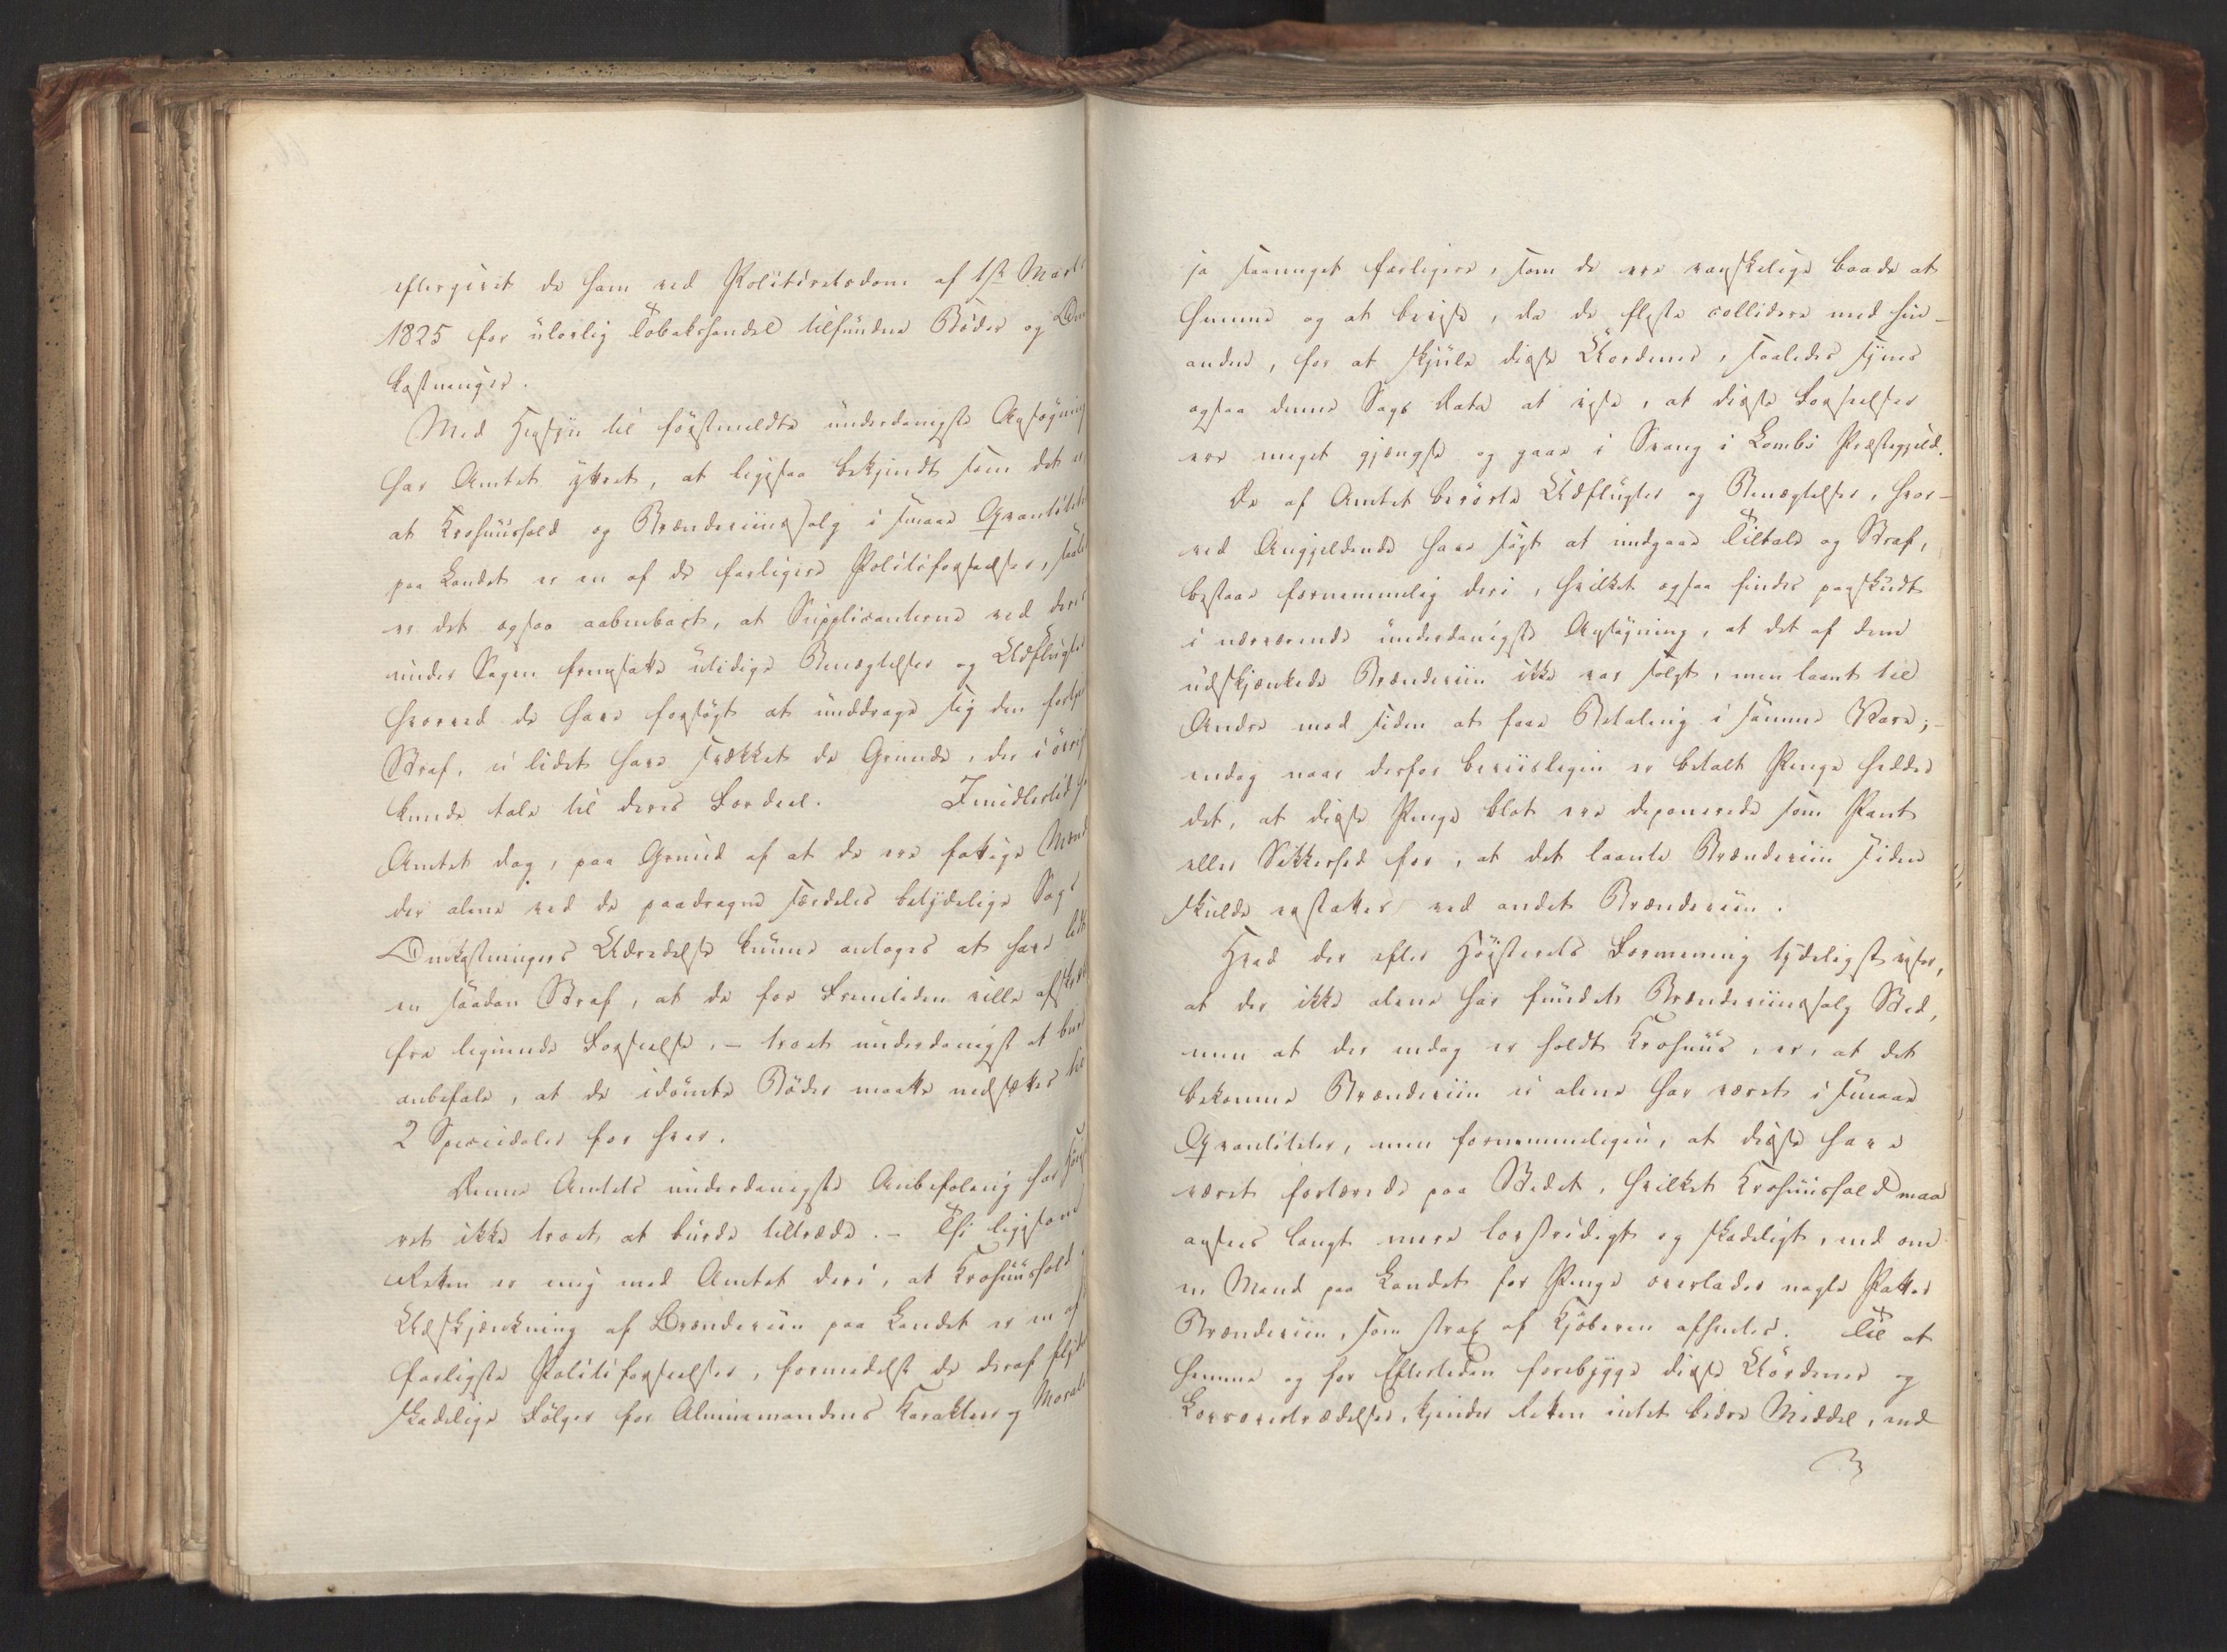 eftergivet de ham ved Politiretsdom af 1ste Marts
1825 for ulovlig Tobakshandel tilfundne Bøder og Om
kostninger.
Med Hensyn til förstmeldte underdanigste Ansøgning
har Amtet yttret, at ligesaa bekjendt som det er,
at Krohuushold og Brændeviinssalg i smaae Qvantiteter
paa Landet er en af de farligere Politiforseelser, saale
er det ogsaa aabenbart, at Supplicanterne ved deres
under Sagen fremsatte utidige Benægtelser og Udflugter
hvorved de have forsøgt at unddrage sig den forskyldte
Straf, ei lidet have svækket de Grunde, der i övrigt
kunde tale til deres Fordeel. Imidlertid har
Amtet dog, paa Grund af at de ere fattige Mænd
der alene ved de paadragne særdeles betydelige Sags
Omkostningers Udredelse kunne antages at have lidt
en saadan Straf, at de for Fremtiden ville afskrækkes
fra lignende Forseelse, – troet underdanigst at burde
anbefale, at de idömte Bøder maatte nedsættes til
2 Speciedaler for hver.
Denne Amtets underdanigste Anbefaling har Höieste
ret ikke troet at burde tiltræde. – Thi ligesom
Retten er enig med Amtet deri, at Krohuushold
Udskjænkning af Brændeviin paa Landet er en af
farligste Politiforseelser, formedelst de deraf flyde
skadelige Følger for Almuemandens Karakter og Moral
ja saameget farligere, som de ere vanskelige baade at
hemme og at bevise, da de fleste collidere med hin-
anden, for at skjule disse Uordener, saaledes synes
ogsaa denne Sags Data at vise, at disse Forseelser
ere meget gjængse og gaae i Svang i Lomb's Præstegjeld.
De af Amtet berørte Udflugter og Benægtelser, hvor-
ved Angjeldende have søgt at undgaae Tiltale og Straf,
bestaae fornemmelig deri, hvilket ogsaa findes paaskudt
i nærværende underdanigste Ansøgning, at det af dem
udskjænkede Brændeviin ikke var solgt, men laant til
Andre mod siden at faae Betaling i samme Vare;-
endog naar derfor beviisligen er betalt Penge hedder
det, at disse Penge blot ere deponerede som Pant
eller Sikkerhed for, at det laante Brændeviin siden
skulde erstattes ved andet Brændeviin.
Hvad der efter Höiesterets Formening tydeligst viser,
at der ikke alene har fundet Brændeviinssalg Sted,
men at der endog er holdt Krohuus, er, at det
bekomne Brændeviin ei alene har været i smaae
Qvantiteter, men fornemmeligen, at disse have
været fortærede paa Stedet, hvilket Krohuushold maa
ansees langt mere lovstridigt og skadeligt, end om
en Mand paa Landet for Penge overlader nogle Potter
Brændeviin, som strax af Kjöberen afhentes. Til at
hemme og for Eftertiden forebygge disse Uordener og
Lovovertrædelser, kjender Retten intet bedre Middel, end